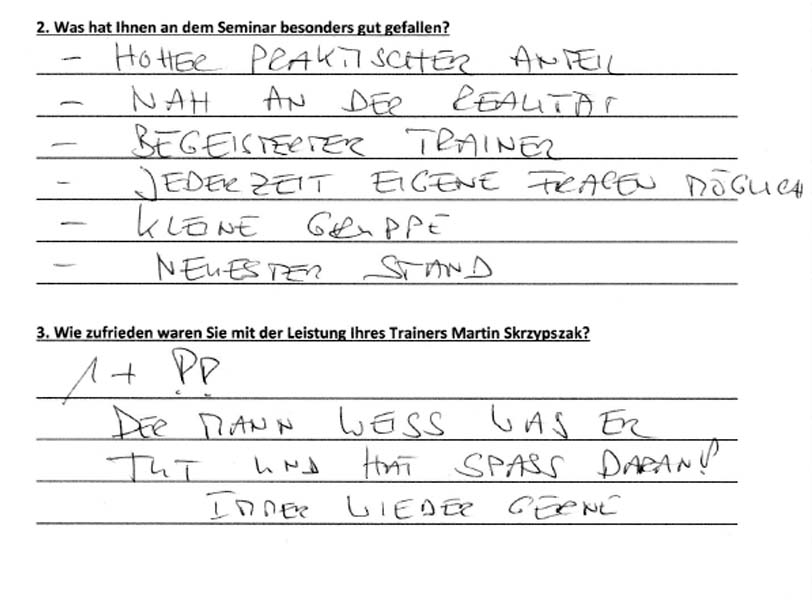 2. Was hat Ihnen an dem Seminar besonders gut gefallen?
- HOHER PRAKTISCHER ANTEIL
- NAH AN DER REALITÄT
- BEGEISTERTER TRAINER
- JEDERZEIT EIGENE FRAGEN MÖGLICH
- KLEINE GRUPPE
- NEUESTER STAND
3. Wie zufrieden waren Sie mit der Leistung Ihres Trainers Martin Skrzypszak?
1+ !!
DER MANN WEISS WAS ER
TUT UND HAT SPASS DARAN!
IMMER WIEDER GERNE